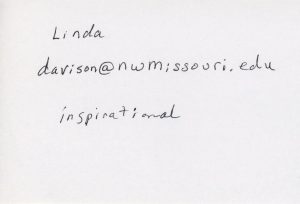 Linda
davison@nwmissouri.edu
inspirational